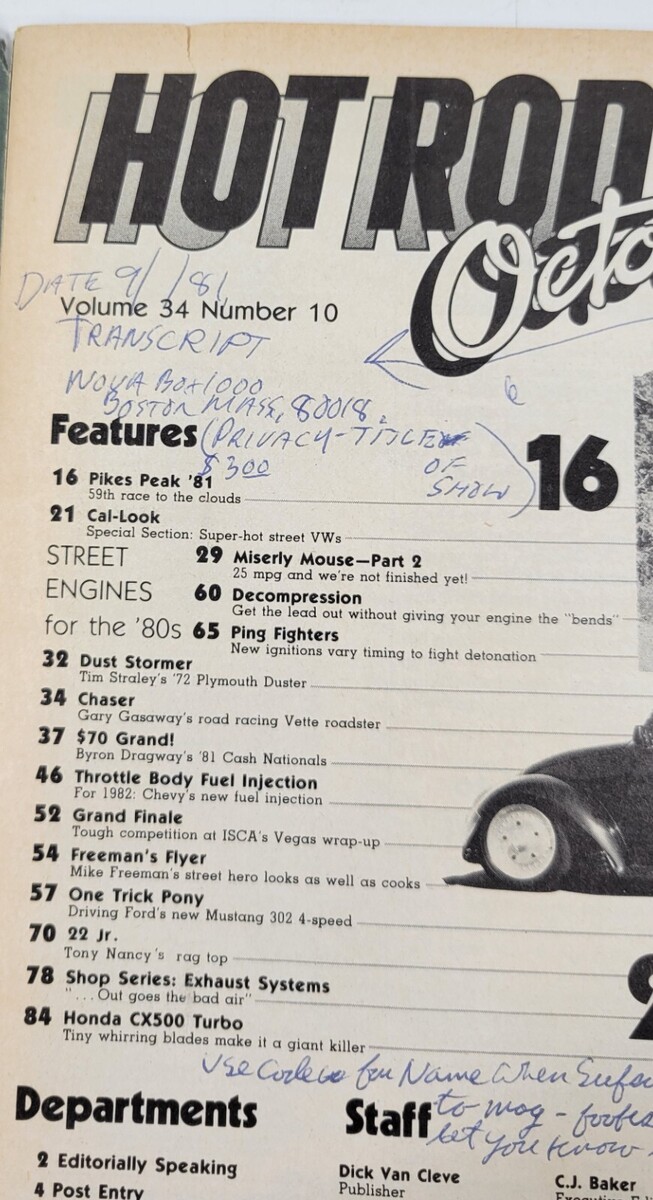 HOT ROD
Octo
DATE 9/ /81
Volume 34 Number 10
TRANSCRIPT
NOVA Box 1000
BOSTON MASS, 80018
Features (PRIVACY-TITLE
OF
SHOW)
$3.00
16
16 Pikes Peak '81
59th race to the clouds
21 Cal-Look
Special Section: Super-hot street VWs
STREET
ENGINES
for the '80s
29 Miserly Mouse—Part 2
25 mpg and we're not finished yet!
60 Decompression
Get the lead out without giving your engine the "bends"
65 Ping Fighters
New ignitions vary timing to fight detonation
32 Dust Stormer
Tim Straley's '72 Plymouth Duster
34 Chaser
Gary Gasaway's road racing Vette roadster
37 $70 Grand!
Byron Dragway's '81 Cash Nationals
46 Throttle Body Fuel Injection
For 1982: Chevy's new fuel injection
52 Grand Finale
Tough competition at ISCA's Vegas wrap-up
54 Freeman's Flyer
Mike Freeman's street hero looks as well as cooks
57 One Trick Pony
Driving Ford's new Mustang 302 4-speed
70 22 Jr.
Tony Nancy's rag top
78 Shop Series: Exhaust Systems
"...Out goes the bad air"
84 Honda CX500 Turbo
Tiny whirring blades make it a giant killer
Use for Name when
to mag -
let you know
Departments
2 Editorially Speaking
4 Post Entry
Staff
Dick Van Cleve
Publisher
C.J. Baker